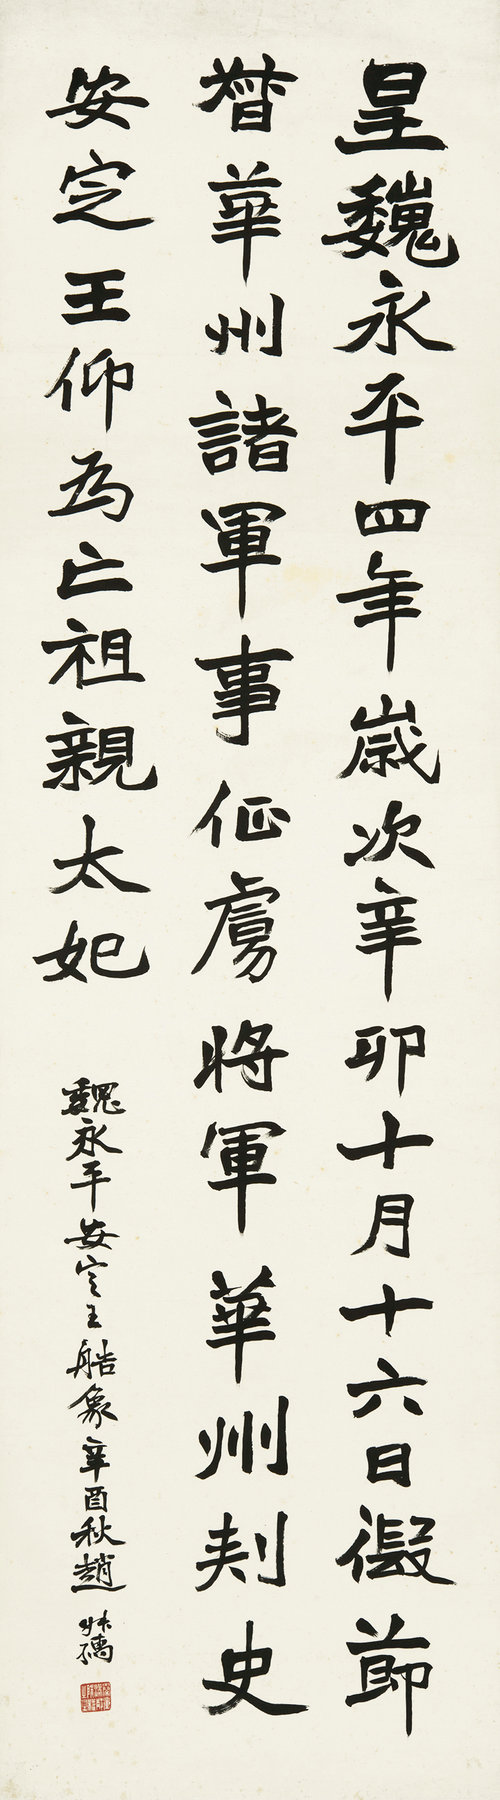 皇魏永平四年歲次辛卯十月十六日假節
督華州諸軍事征虜將軍華州刾史
安定王仰為亡祖親太妃
魏永平安定王艁象辛酉秋趙